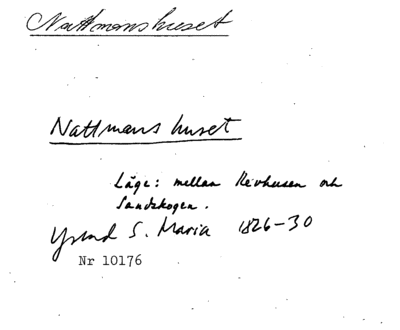 Nattmanshuset
Nattmans huset
Läge: mellan Revhusen och
Sandskogen.
Ystad S. Maria 1826-30
Nr 10176